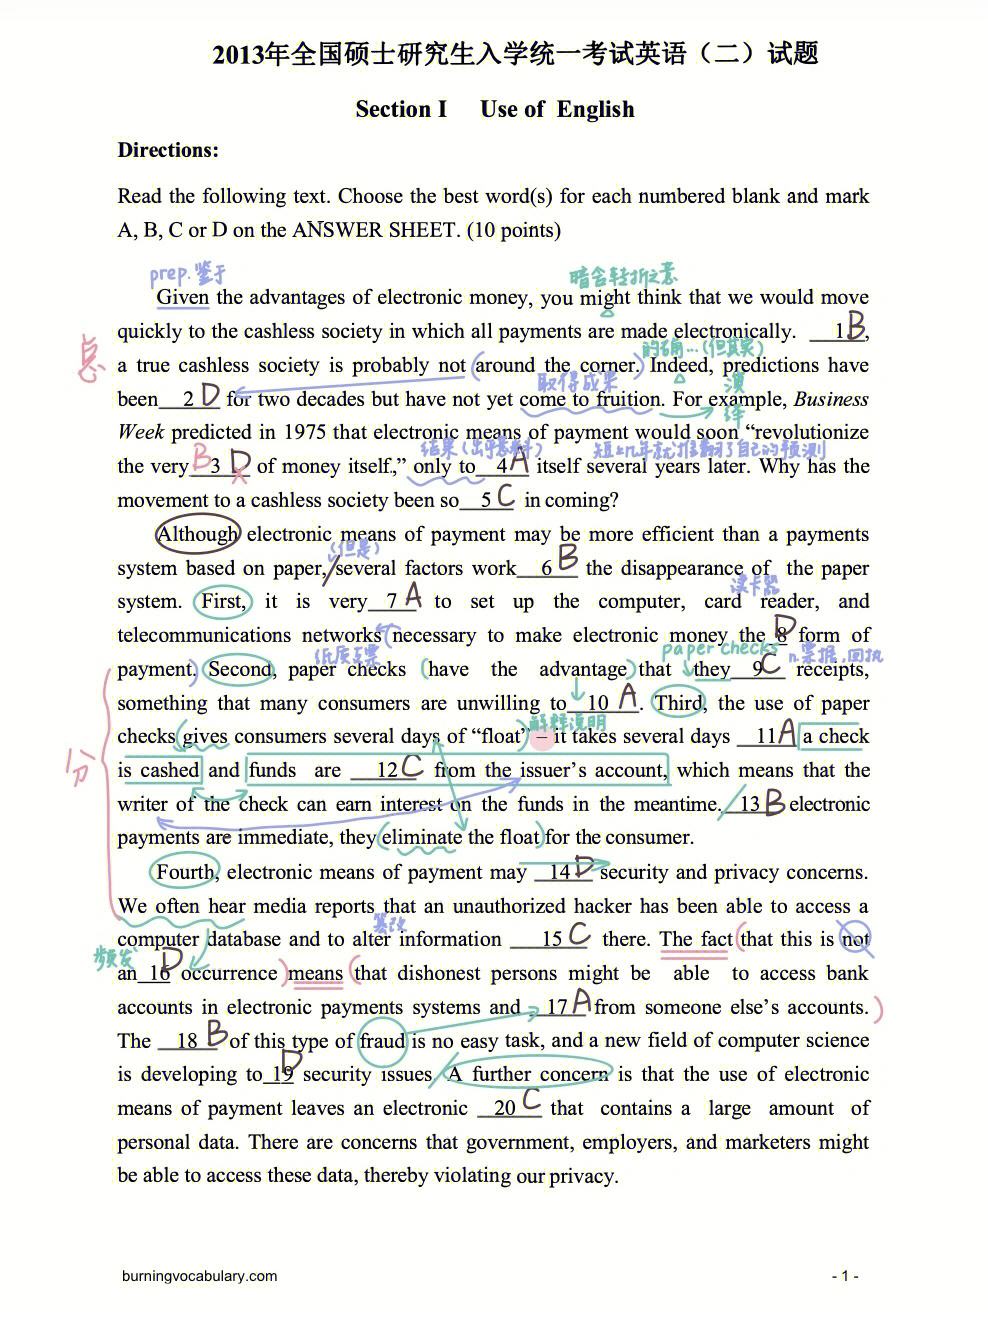 2013年全国硕士研究生入学统一考试英语（二）试题
Section I Use of English
Directions:
Read the following text. Choose the best word(s) for each numbered blank and mark
A, B, C or D on the ANSWER SHEET. (10 points)
prep. 鉴于 暗含转折之意
Given the advantages of electronic money, you might think that we would move
quickly to the cashless society in which all payments are made electronically. 1 B,
总 的确…(但其实)
a true cashless society is probably not (around the corner.) Indeed, predictions have
取得成果 演绎
been 2 D for two decades but have not yet come to fruition. For example, Business
Week predicted in 1975 that electronic means of payment would soon “revolutionize
结果(出乎意料) 短短几年就推翻了自己的预测
the very B 3 D of money itself,” only to 4 A itself several years later. Why has the
movement to a cashless society been so 5 C in coming?
Although electronic means of payment may be more efficient than a payments
(但是)
system based on paper, / several factors work 6 B the disappearance of the paper
读卡器
system. First, it is very 7 A to set up the computer, card reader, and
telecommunications networks (necessary to make electronic money the 8 D form of
纸质支票 paper checks n.票据,回执
payment.) Second, paper checks (have the advantage) that they 9 C receipts,
something that many consumers are unwilling to 10 A. Third, the use of paper
解释说明
checks (gives consumers several days of “float”) – it takes several days 11 A a check
分
is cashed and funds are 12 C from the issuer’s account, which means that the
writer of the check can earn interest on the funds in the meantime. / 13 B electronic
payments are immediate, they (eliminate the float) for the consumer.
Fourth, electronic means of payment may 14 D security and privacy concerns.
We often hear media reports that an unauthorized hacker has been able to access a
篡改
computer database and to alter information 15 C there. The fact (that this is not
频发
an 16 D occurrence) means (that dishonest persons might be able to access bank
accounts in electronic payments systems and 17 A from someone else’s accounts.)
The 18 B of this type of fraud is no easy task, and a new field of computer science
is developing to 19 D security issues. / A further concern is that the use of electronic
means of payment leaves an electronic 20 C that contains a large amount of
personal data. There are concerns that government, employers, and marketers might
be able to access these data, thereby violating our privacy.
burningvocabulary.com - 1 -